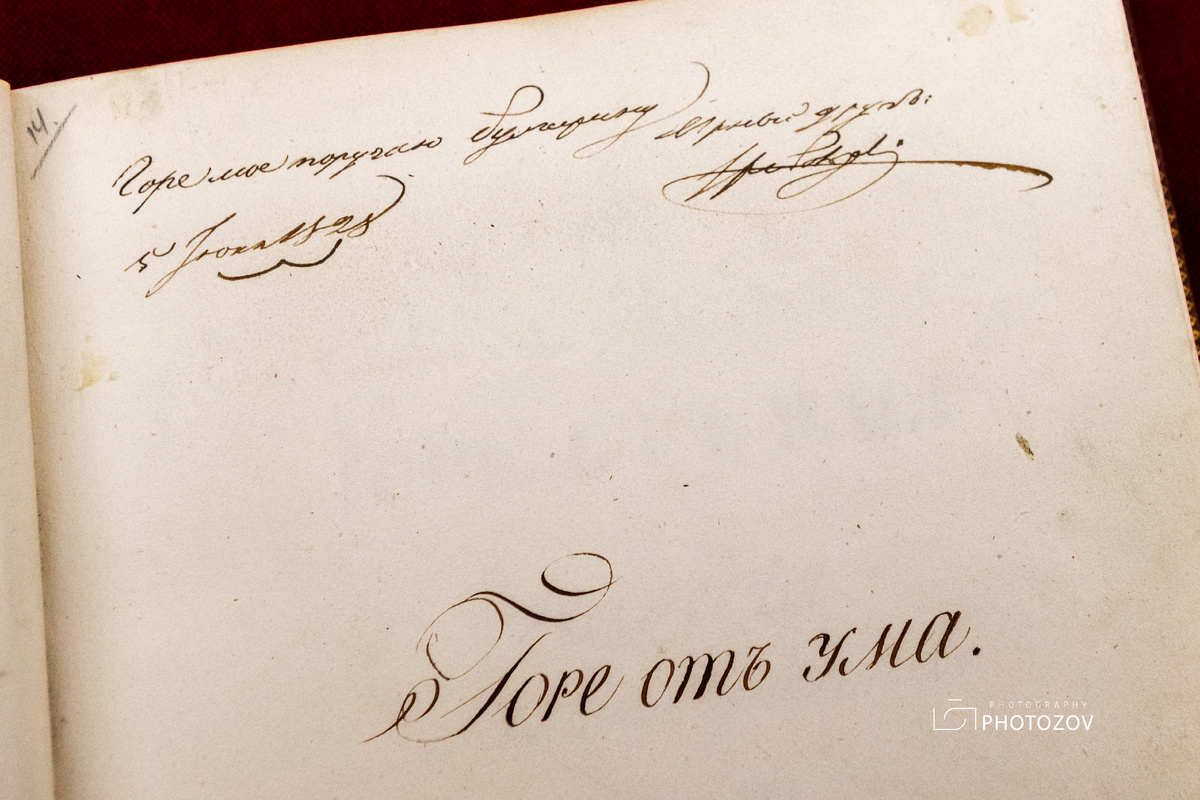 14.
Горе мое поручаю Булгарину Верный другъ:
Грибоѣдов.
5 Іюня 1828
Горе отъ ума.
PHOTOGRAPHY
PHOTOZOV